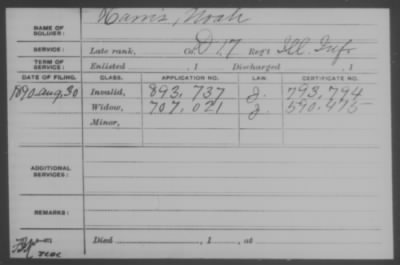 NAME OF SOLDIER: Harris, Noah
SERVICE: Late rank, Co. D 17 Reg't Ill. Inf.
TERM OF SERVICE: Enlisted , 1 Discharged , 1
DATE OF FILING. CLASS. APPLICATION NO. LAW. CERTIFICATE NO.
1890 Aug. 30 Invalid, 893,737 J. 793,794
Widow, 707,021 J. 590,475
Minor,
ADDITIONAL SERVICES:
REMARKS:
Died , 1 , at